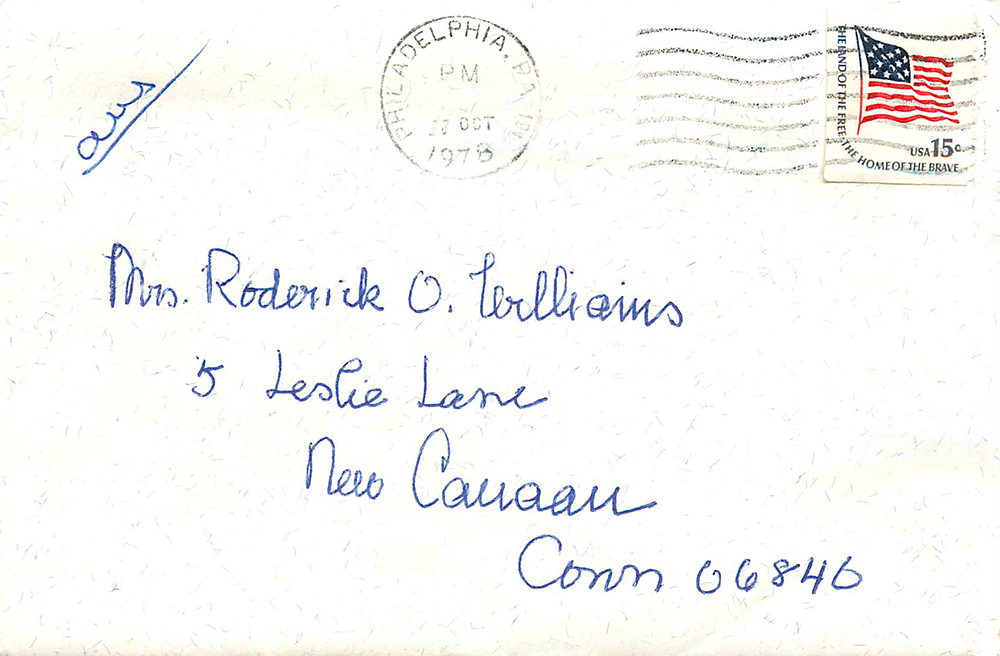 ans
PHILADELPHIA, PA
PM
OCT
1978
THE LAND OF THE FREE, THE HOME OF THE BRAVE
USA 15c
Mrs. Roderick O. Williams
5 Leslie Lane
New Canaan
Conn 06840